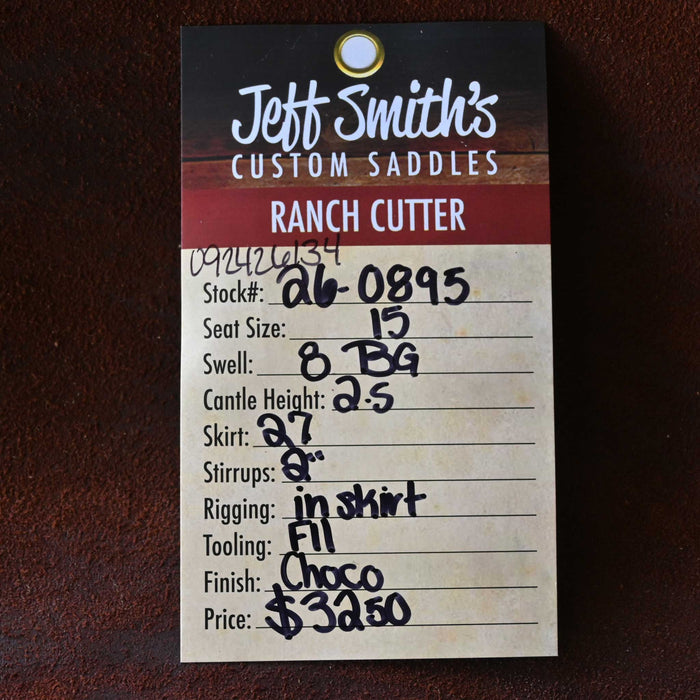 Jeff Smith's
CUSTOM SADDLES
RANCH CUTTER
092426134
Stock#: 26-0895
Seat Size: 15
Swell: 8 BG
Cantle Height: 2.5
Skirt: 27
Stirrups: 2"
Rigging: in skirt
Tooling: F11
Finish: Choco
Price: $3250